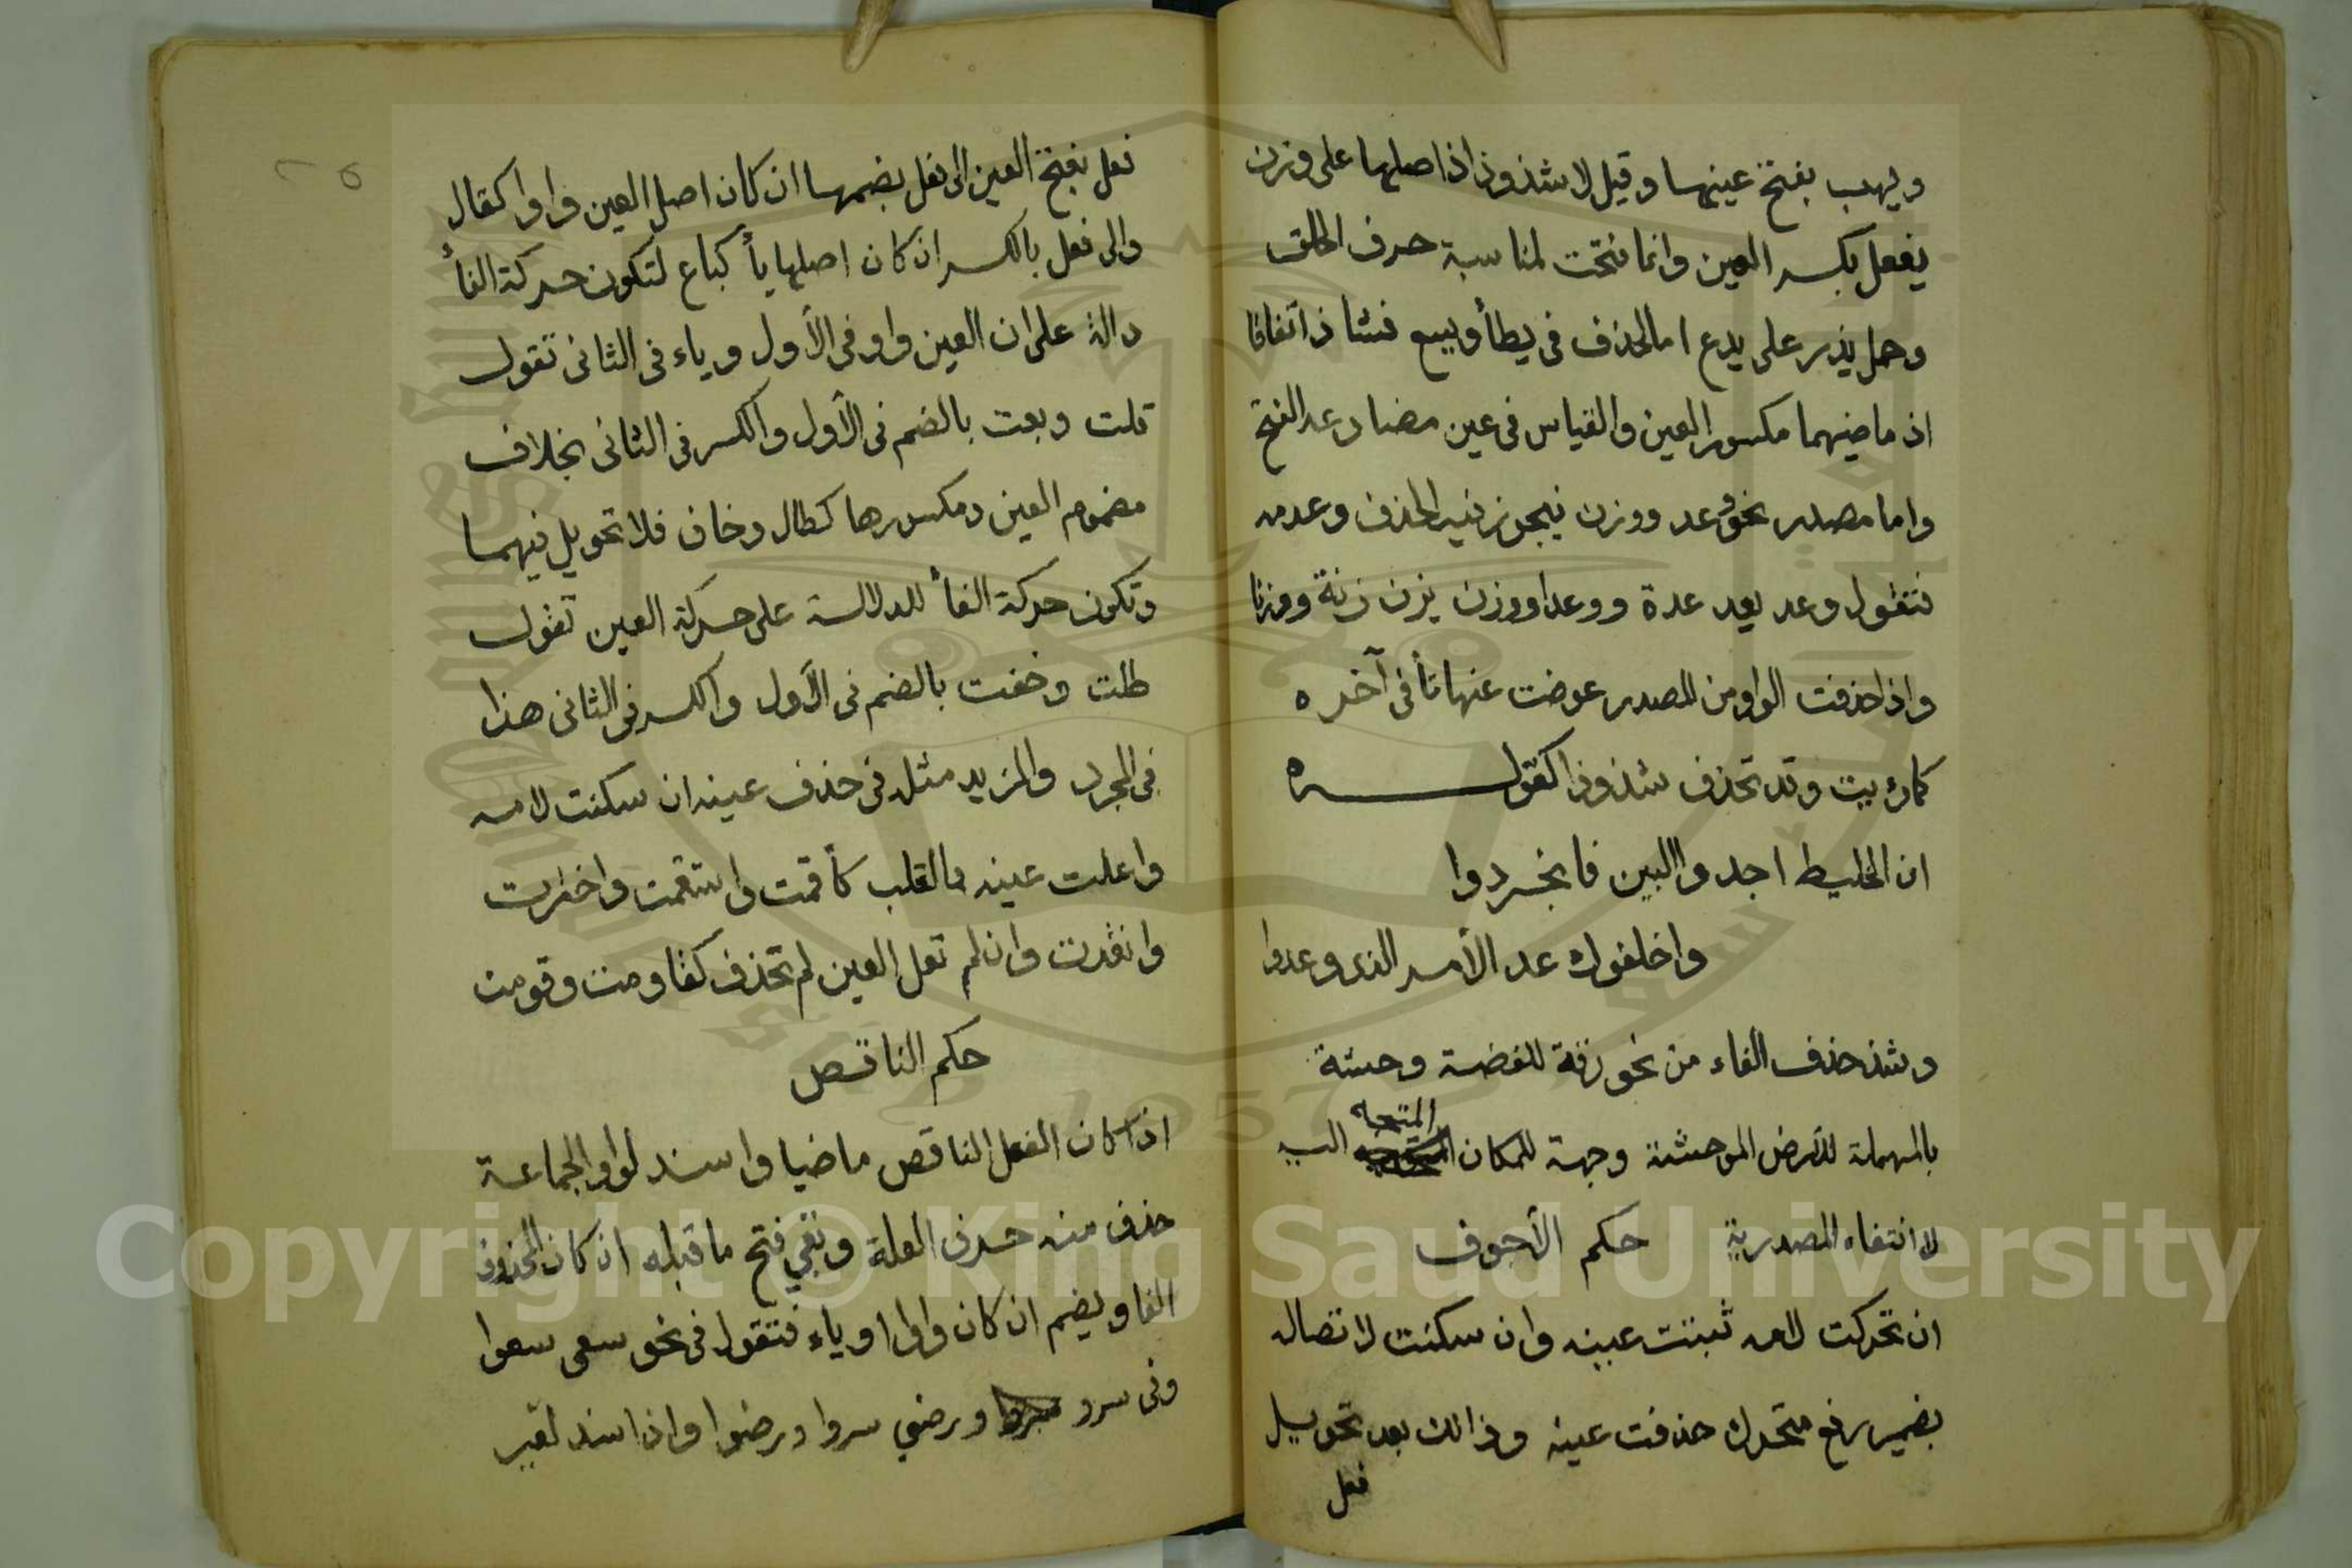 ويهب بفتح عينهما وقيل لا شذوذ اذ اصلها على وزن
يفعل بكسر العين وانما فتحت لمناسبة حرف الحلق
وحمل يذر على يدع اما الحذف في يطأ ويسع فشاذ اتفاقا
اذ ماضيهما مكسور العين والقياس في عين مضارعه الفتح
واما مصدر نحو وعد ووزن فيجوز فيه الحذف وعدمه
فتقول وعد يعد عدة ووعدا ووزن يزن زنة ووزنا
واذا حذفت الواو من المصدر عوضت عنها تأ في آخره
كما رئيت وقد تحذف شذوذا كقوله
ان الخليط اجدوا البين فانجردوا
واخلفوك عد الأمر الذي وعدوا
وشذ حذف الفاء من نحو رقة للفضة وحشة
بالمهملة للأرض الموحشة وجهة للمكان المتجه اليه
لا انتفاء المصدرية حكم الأجوف
ان تحركت لامه ثبتت عينه وان سكنت لاتصاله
بضمير رفع متحرك حذفت عينه وذالك بعد تحويل
فعل
٢٥
فعل بفتح العين الى فعل بضمها ان كان اصل العين واوا كقال
والى فعل بالكسر ان كان اصلها يأ كباع لتكون حركة الفأ
دالة على ان العين واو في الأول وياء في الثاني تقول
قلت وبعت بالضم في الأول والكسر في الثاني بخلاف
مضموم العين ومكسورها كطال وخاف فلا تحويل فيهما
وتكون حركة الفأ للدلالة على حركة العين تقول
طلت وخفت بالضم في الأول والكسر في الثاني هذا
في المجرد والمزيد مثله في حذف عينه ان سكنت لامه
واعلت عينه بالقلب كأقمت واستقمت واخترت
وانقدت وان لم تعل العين لم تحذف كقاومت وقومت
حكم الناقص
اذا كان الفعل الناقص ماضيا واسند لواو الجماعة
حذف منه حرف العلة وبقي فتح ما قبله ان كان المحذوف
الفا ويضم ان كان واوا او ياء فتقول في نحو سعى سعوا
وفي سرو ورضي سروا ورضوا واذا اسند لغير
Copyright © King Saud University
1957